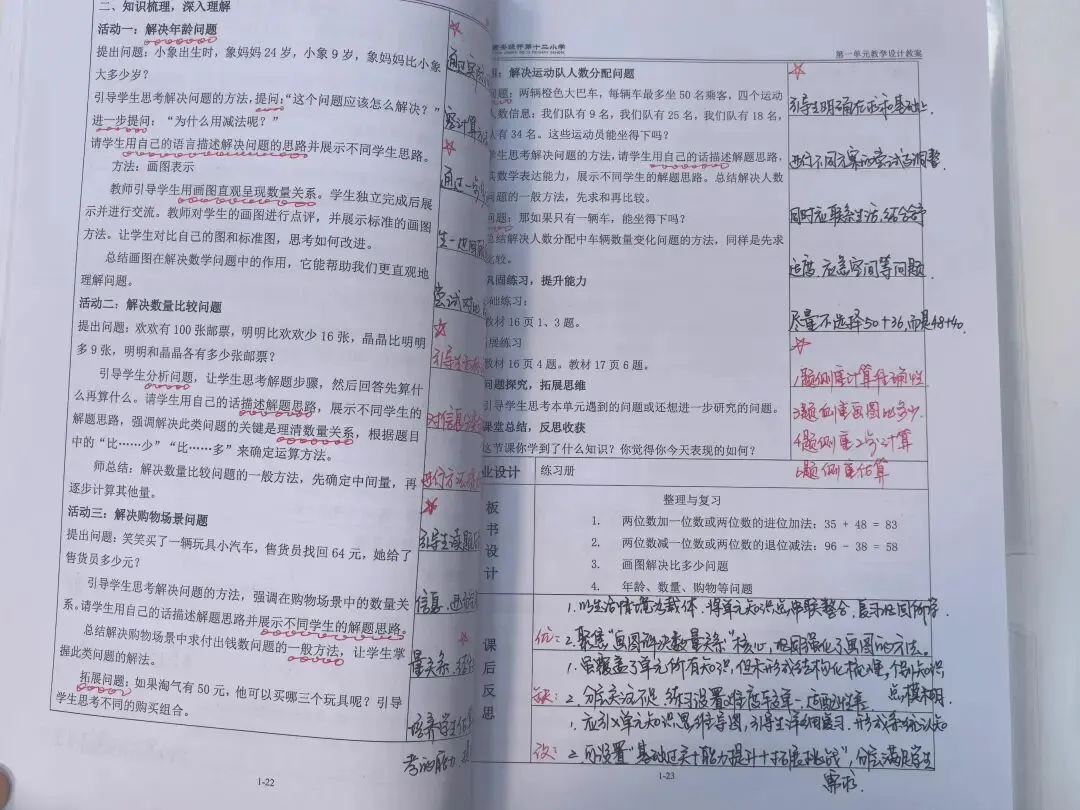 二、知识梳理，深入理解
活动一：解决年龄问题
提出问题：小象出生时，象妈妈24岁，小象9岁，象妈妈比小象
大多少岁？
引导学生思考解决问题的方法，提问：“这个问题应该怎么解决？”
进一步提问：“为什么用减法呢？”
请学生用自己的语言描述解决问题的思路并展示不同学生思路。
方法：画图表示
教师引导学生用画图直观呈现数量关系。学生独立完成后展
示并进行交流。教师对学生的画图进行点评，并展示标准的画图
方法。让学生对比自己的图和标准图，思考如何改进。
总结画图在解决数学问题中的作用，它能帮助我们更直观地
理解问题。
活动二：解决数量比较问题
提出问题：欢欢有100张邮票，明明比欢欢少16张，晶晶比明明
多9张，明明和晶晶各有多少张邮票？
引导学生分析问题，让学生思考解题步骤，然后回答先算什
么再算什么。请学生用自己的话描述解题思路，展示不同学生的
解题思路，强调解决此类问题的关键是理清数量关系，根据题目
中的“比……少”“比……多”来确定运算方法。
师总结：解决数量比较问题的一般方法，先确定中间量，再
逐步计算其他量。
活动三：解决购物场景问题
提出问题：笑笑买了一辆玩具小汽车，售货员找回64元，她给了
售货员多少元？
引导学生思考解决问题的方法，强调在购物场景中的数量关
系。请学生用自己的话描述解题思路并展示不同学生的解题思路。
总结解决购物场景中求付出钱数问题的一般方法，让学生掌
握此类问题的解法。
拓展问题：如果淘气有50元，他可以买哪三个玩具呢？引导
学生思考不同的购买组合。
通过
尝试对比
引导学生
对信息
进行方法
引导学生读题
信息
量关系
培养学生
考的能力
1-22
第十二小学
第一单元教学设计教案
：解决运动队人数分配问题
问题：两辆橙色大巴车，每辆车最多坐50名乘客，四个运动
人数信息：我们队有9名，我们队有25名，我们队有18名，
人有34名。这些运动员能坐得下吗？
学生思考解决问题的方法，请学生用自己的话描述解题思路，
数学表达能力，展示不同学生的解题思路。总结解决人数
问题的一般方法，先求和再比较。
问题：那如果只有一辆车，能坐得下吗？
总结解决人数分配中车辆数量变化问题的方法，同样是先求
比较。
巩固练习，提升能力
基础练习：
教材16页1、3题。
拓展练习
教材16页4题。教材17页6题。
问题探究，拓展思维
引导学生思考本单元遇到的问题或还想进一步研究的问题。
课堂总结，反思收获
这节课你学到了什么知识？你觉得你今天表现的如何？
引导学生明确在求和基础上
进行不同方案的尝试与调整
同时应联系生活，结合舒
适度、应急空间等问题.
尽量不选择50+36,而是48+40.
1题侧重计算准确性
3题侧重画图比多少.
4题侧重 计算
6题侧重估算
业设计
练习册
板书设计
整理与复习
1. 两位数加一位数或两位数的进位加法：35 + 48 = 83
2. 两位数减一位数或两位数的退位减法：96 - 38 = 58
3. 画图解决比多少问题
4. 年龄、数量、购物等问题
课后反思
1.以生活情境为载体，将单元知识点串联整合，复习巩固所学.
优：2.聚焦“画图解决数量关系”核心，巩固强化了画图的方法。
1.虽覆盖了单元所有知识，但未形成结构化梳理，个别知识
点模糊.
缺：2.分层关注不足，练习设置难度较单一，适配性差
1.应引入单元知识思维导图，引导学生详细复习，形成系统认知
改：2.可设置“基础过关+能力提升+拓展挑战”，分层满足学生
需求.
1-23